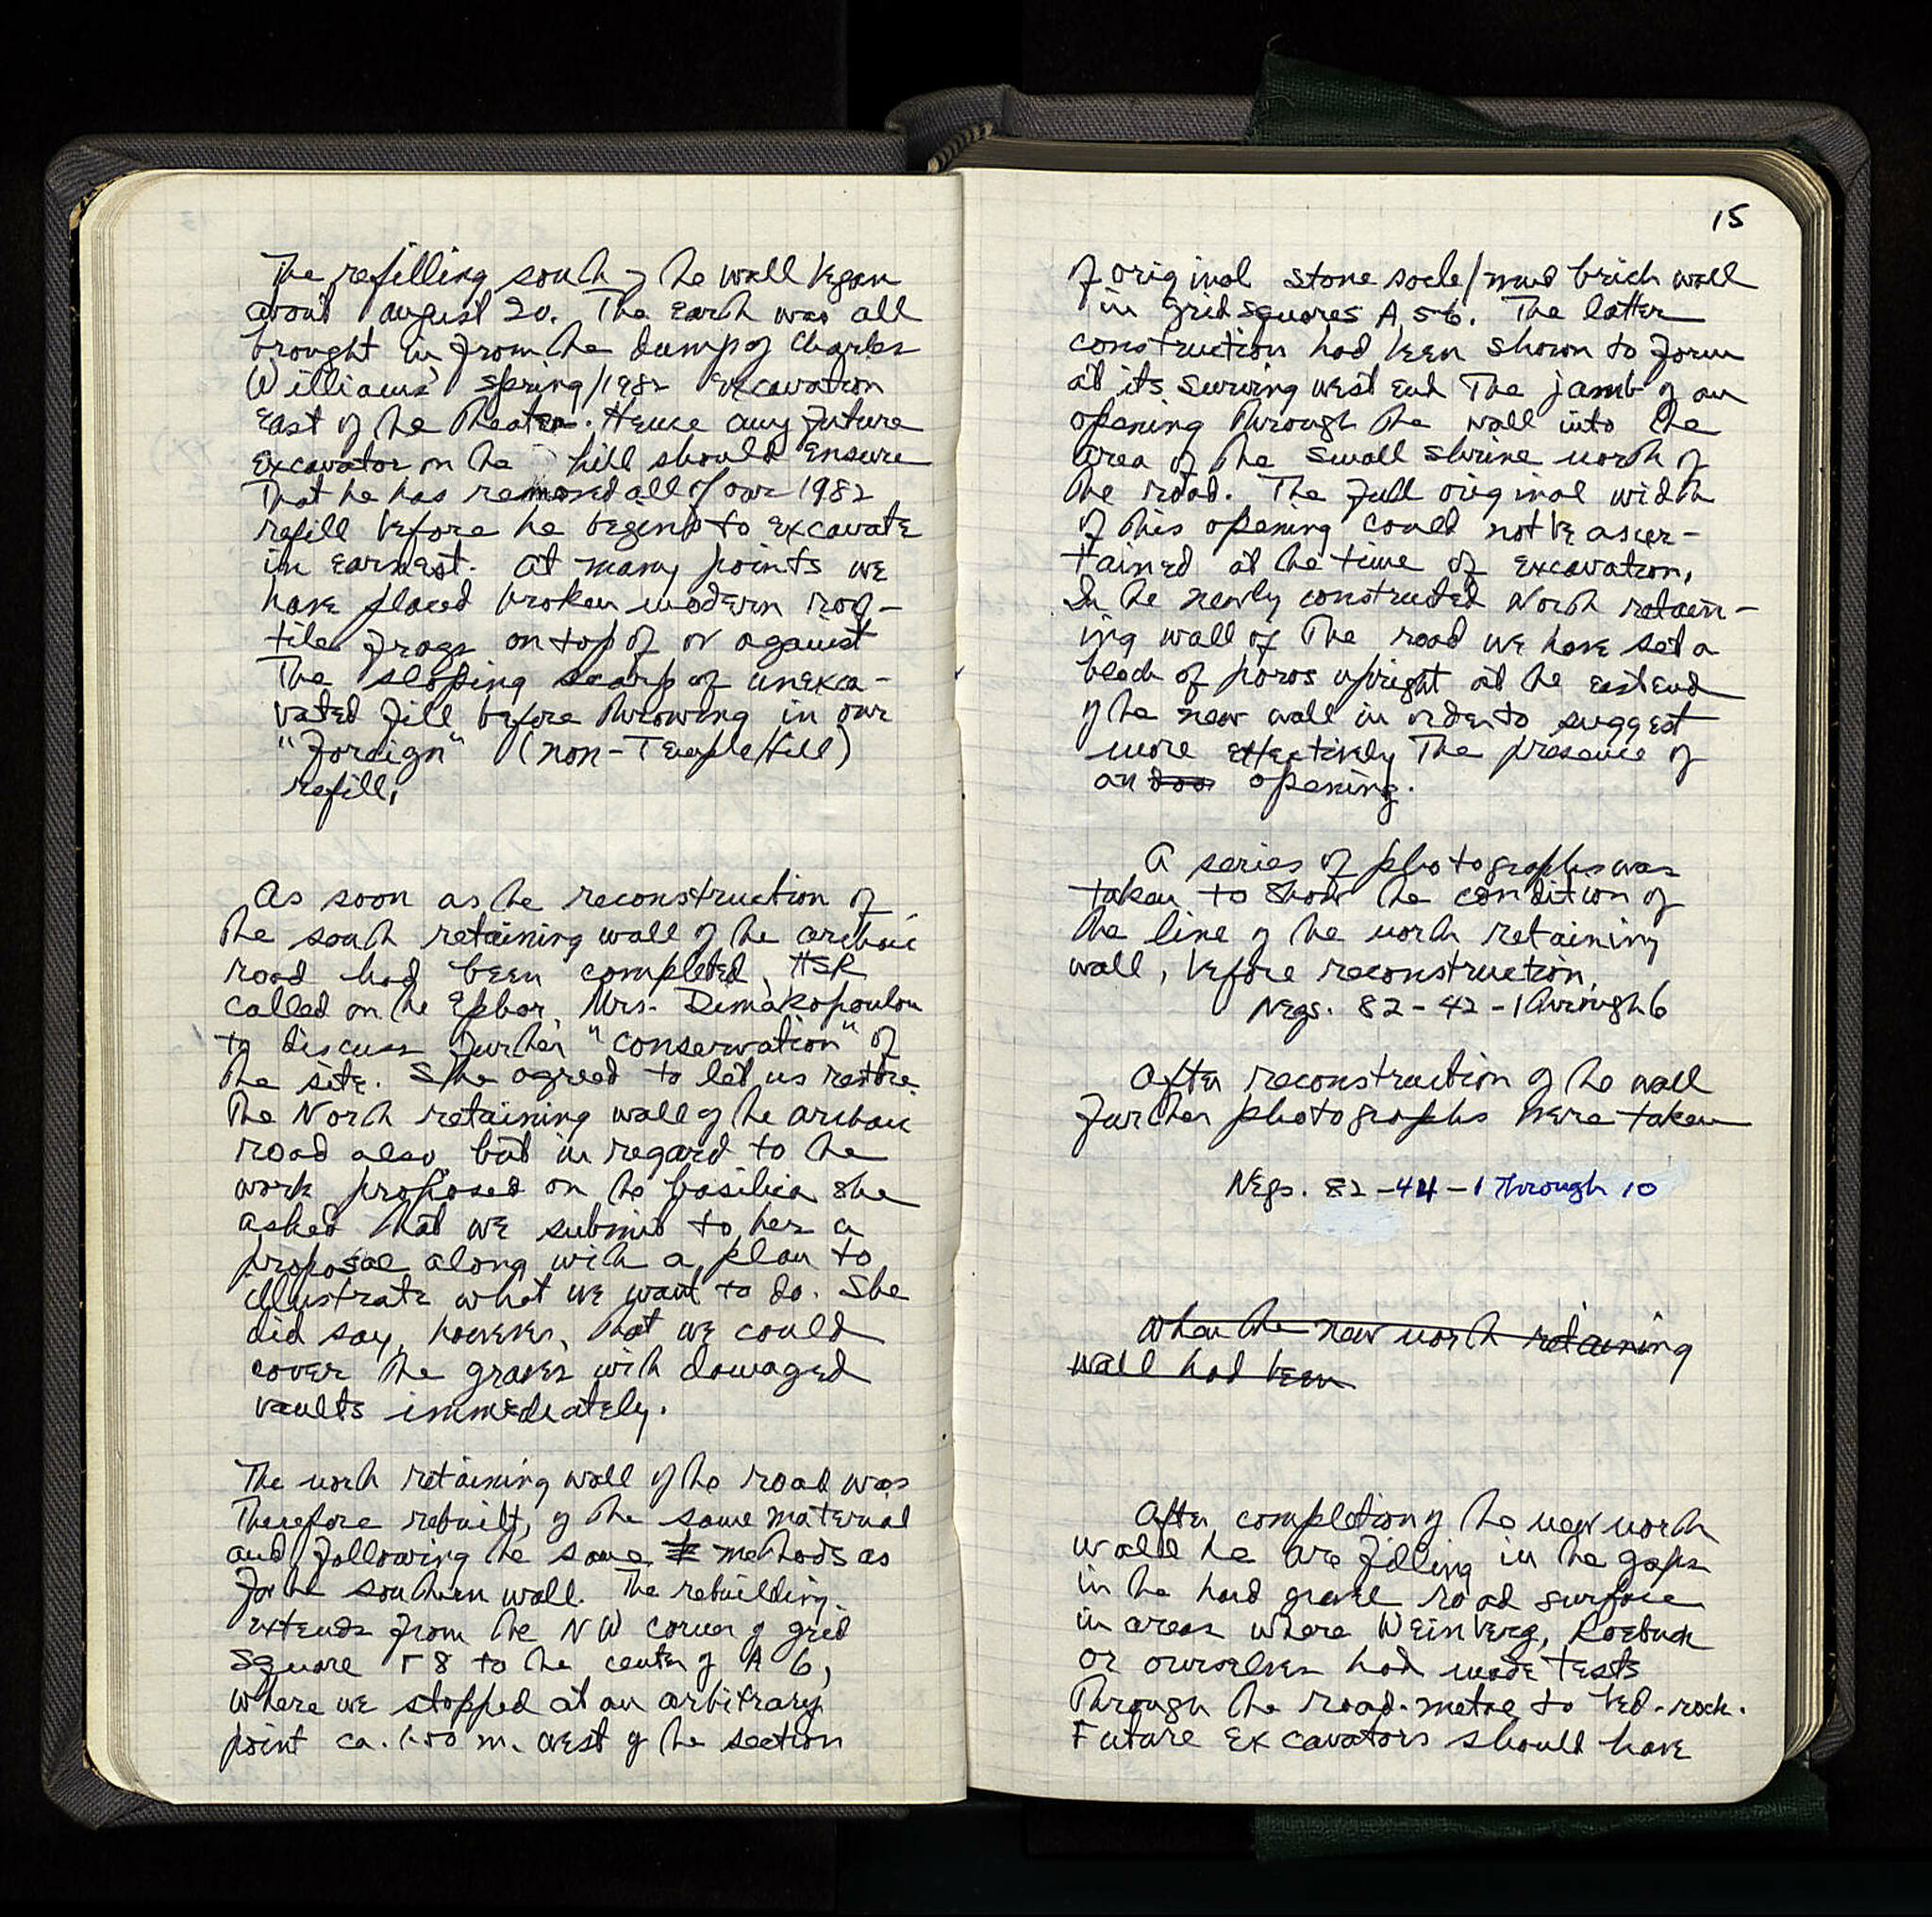 The refilling south of the wall began
about August 20. The earth was all
brought in from the dump of Charles
Williams' spring/1982 Excavation
East of the Theater. Hence any future
Excavator on the hill should Ensure
That he has removed all of our 1982
refill before he begins to Excavate
in earnest. At many points we
have placed broken modern roof-
tile frags on top of or against
The sloping scarp of unexca-
vated fill before throwing in our
"Foreign" (non-Temple Hill)
refill.
As soon as the reconstruction of
the south retaining wall of the archaic
road had been completed, HSR
called on the Ephor, Mrs. Demakopoulou
to discuss further "conservation" of
the site. She agreed to let us restore
The North retaining wall of the archaic
road also, but in regard to the
work proposed on the basilica she
asked that we submit to her a
proposal along with a plan to
illustrate what we want to do. She
did say, however, that we could
cover the graves with damaged
vaults immediately.
The north retaining wall of the road was
Therefore rebuilt, of the same material
and following the same methods as
for the southern wall. The rebuilding
extends from the NW corner of grid
Square Γ 8 to the center of A 6,
where we stopped at an arbitrary
point ca. 1.50 m. west of the section
15
of original stone socle/mud brick wall
in grid squares A 5-6. The latter
construction had been shown to form
at its surving west end The jamb of an
opening through the wall into the
area of the small shrine north of
the road. The full original width
of this opening could not be ascer-
tained at the time of excavation.
In the newly constructed North retain-
ing wall of The road we have set a
block of poros upright at the east end
of the new wall in order to suggest
more effectively The presence of
an doo opening.
A series of photographs was
taken to show the condition of
the line of the north retaining
wall, before reconstruction.
Negs. 82-42-1 through 6
After reconstruction of the wall
further photographs were taken
Negs. 82-44-1 through 10
When the new north retaining
wall had been
After completion of the new north
wall he are filling in the gaps
in the hard gravel road surface
in areas where Weinberg, Roebuck
or ourselves had made tests
Through the road-metal to bed-rock.
Future Excavators should have